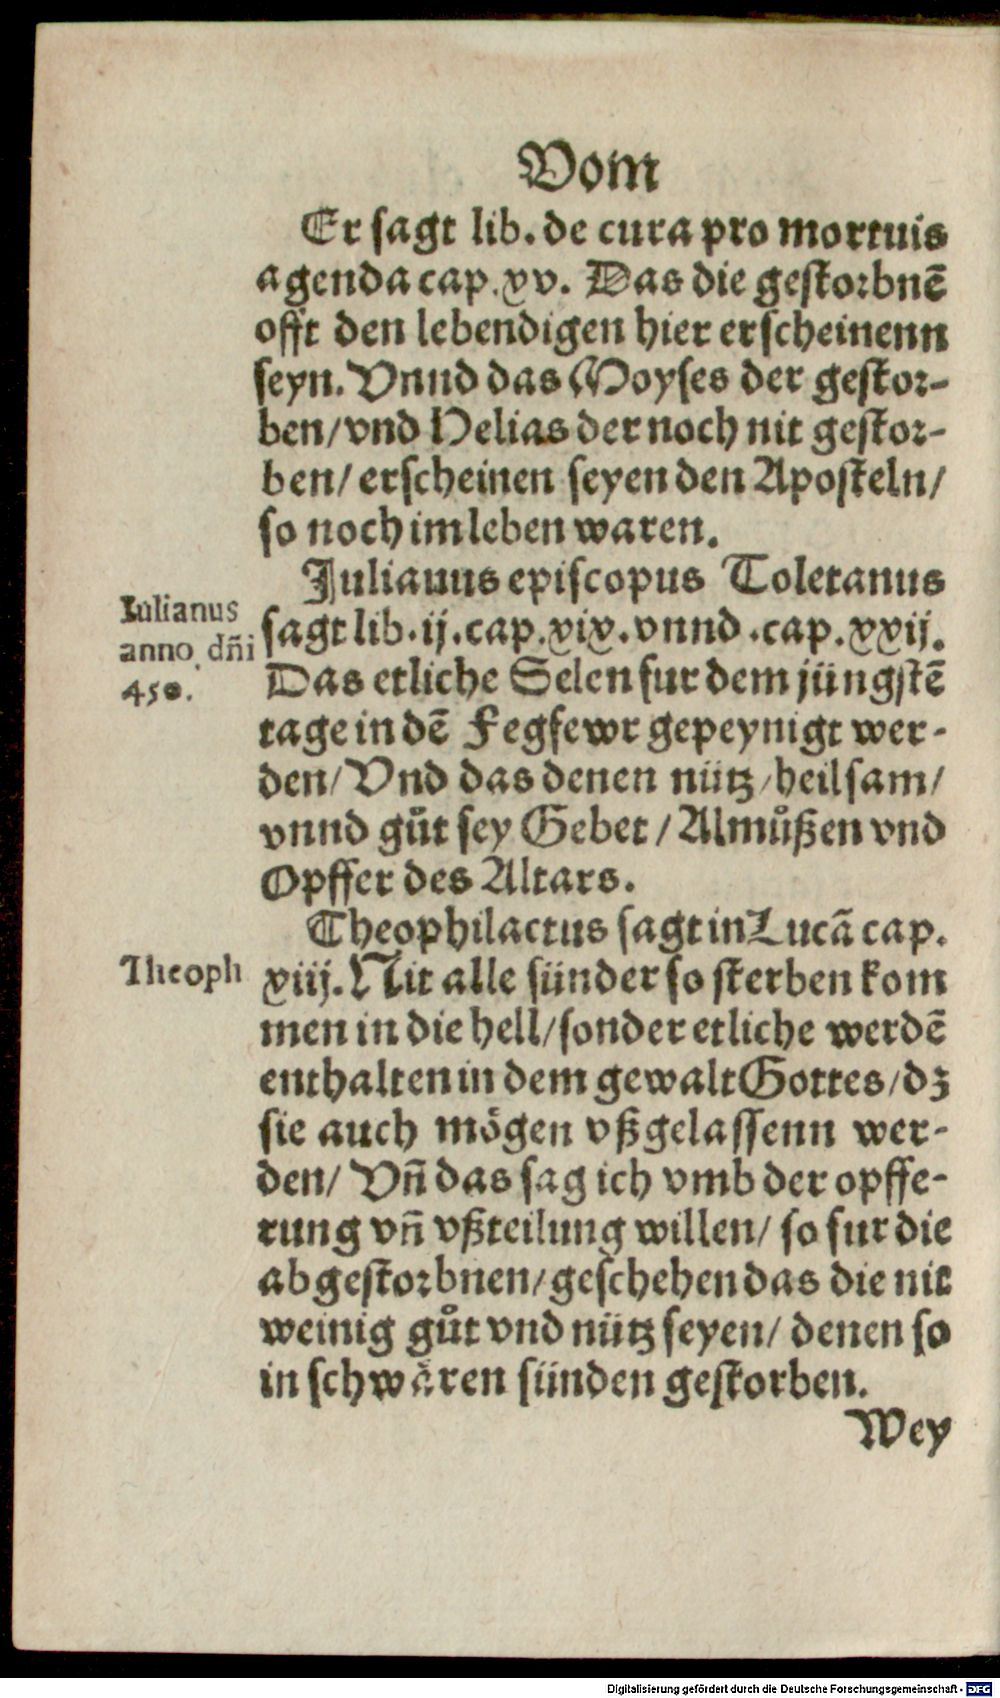 Vom
Er sagt lib. de cura pro mortuis
agenda cap. xv. Das die gestorbnẽ
offt den lebendigen hier erscheinenn
seyn. Vnnd das Moyses der gestor-
ben/ vnd Helias der noch nit gestor-
ben/ erscheinen seyen den Aposteln/
so noch im leben waren.
Julianus episcopus Toletanus
Iulianus
anno dñi
450.
sagt lib. ij. cap. xix. vnnd .cap. xxij.
Das etliche Selen fur dem jüngstẽ
tage in dẽ Fegfewr gepeynigt wer-
den/ Vnd das denen nütz/ heilsam/
vnnd gůt sey Gebet/ Almůßen vnd
Opffer des Altars.
Theophilactus sagt in Lucã cap.
Theoph
xiij. Nit alle sünder so sterben kom
men in die hell/ sonder etliche werdẽ
enthalten in dem gewalt Gottes/ dz
sie auch mögen vßgelassenn wer-
den/ Vñ das sag ich vmb der opffe-
rung vñ vßteilung willen/ so fur die
abgestorbnen/ geschehen das die nit
weinig gůt vnd nütz seyen/ denen so
in schwären sünden gestorben.
Wey
Digitalisierung gefördert durch die Deutsche Forschungsgemeinschaft - DFG